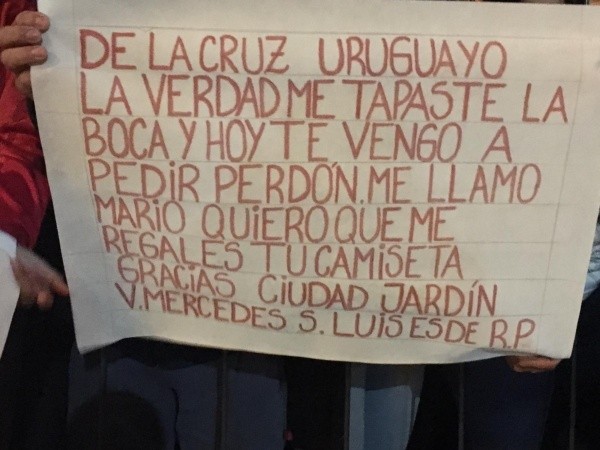 DE LA CRUZ URUGUAYO
LA VERDAD ME TAPASTE LA
BOCA Y HOY TE VENGO A
PEDIR PERDÓN. ME LLAMO
MARIO QUIERO QUE ME
REGALES TU CAMISETA
GRACIAS CIUDAD JARDÍN
V. MERCEDES S. LUIS ES DE R.P